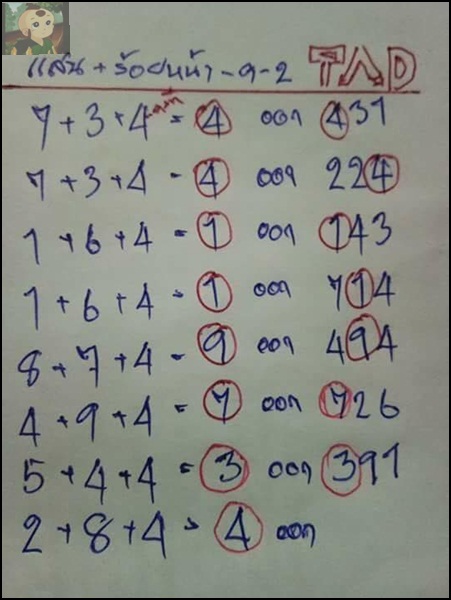 แสน + ร้อยหน้า - ๑ - 2 TAD
7 + 3 + 4 = 4 ออก 431
7 + 3 + 4 - 4 ออก 224
1 + 6 + 4 = 1 ออก 143
1 + 6 + 4 = 1 ออก 714
8 + 7 + 4 = 9 ออก 494
4 + 9 + 4 = 7 ออก 726
5 + 4 + 4 = 3 ออก 391
2 + 8 + 4 = 4 ออก